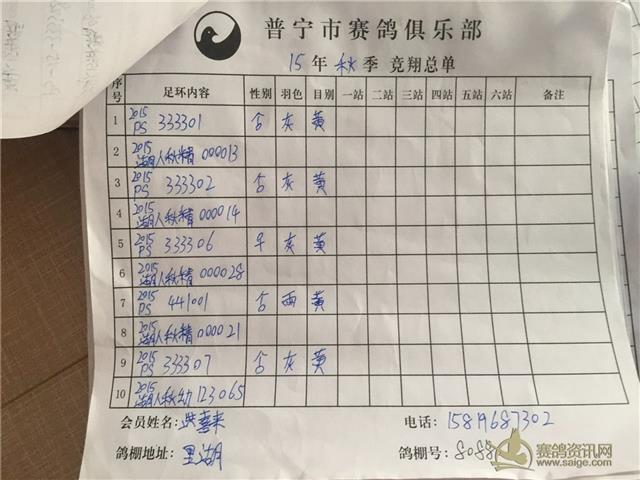 普宁市赛鸽俱乐部
15 年 秋 季 竞翔总单
序号 足环内容 性别 羽色 目别 一站 二站 三站 四站 五站 六站 备注
1 2015 PS 333301 合 灰 黄
2 2015 湖人秋精 000013
3 2015 PS 333302 合 灰 黄
4 2015 湖人秋精 000014
5 2015 PS 333306 灰 黄
6 2015 湖人秋精 000028
7 2015 PS 441001 合 雨 黄
8 2015 湖人秋精 000021
9 2015 PS 333307 合 灰 黄
10 2015 湖人秋幼 123065
会员姓名: 洪喜来 电话: 15819687302
鸽棚地址: 里湖 鸽棚号: 8088
赛鸽资讯网
www.saige.com